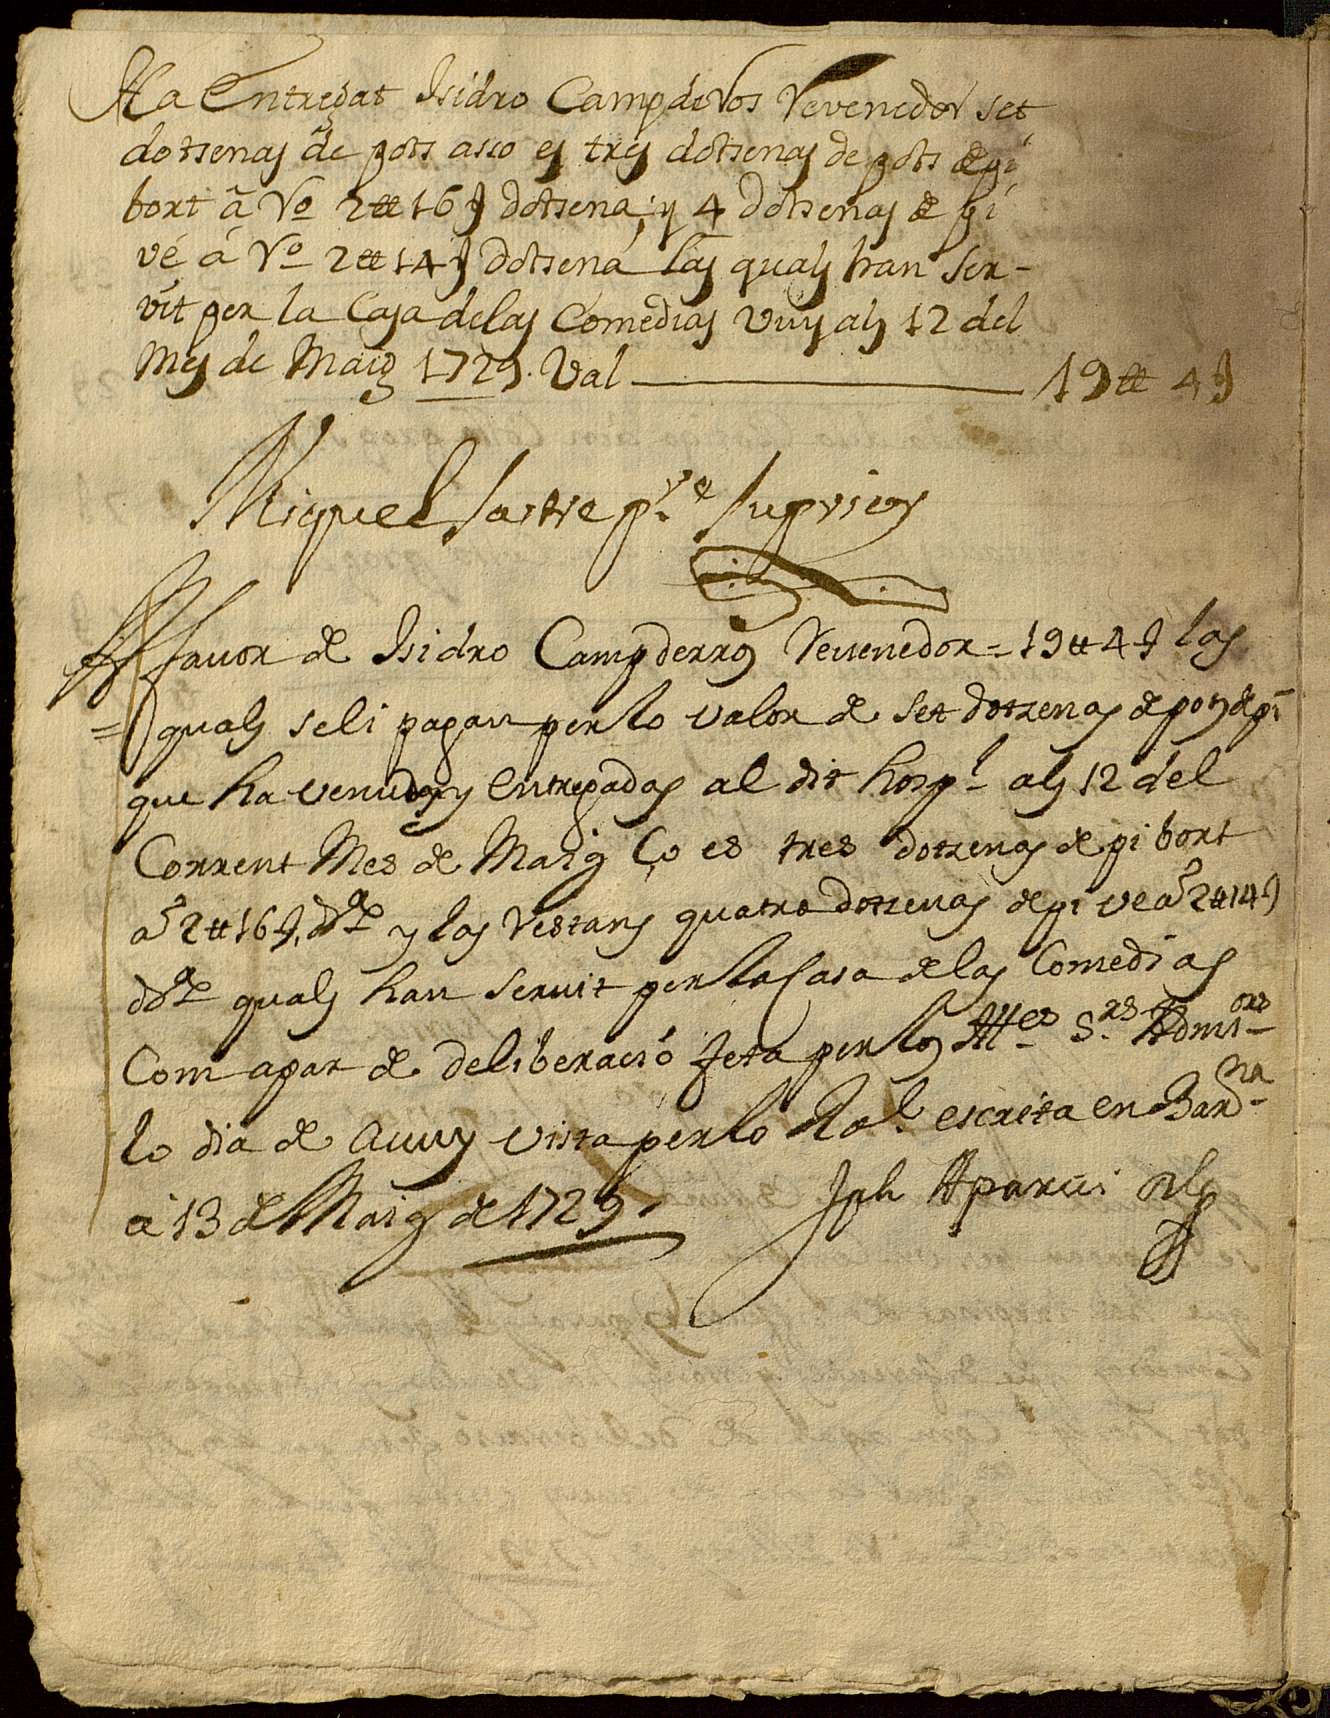 Ha Entregat Isidro Campderos Revenedor set
dotsenas de pots asso es tres dotsenas de pots de pi
bort â Ro 2 tt 16 s dotsena; y 4 dotsenas de pi
vé á Ro 2 tt 14 s dotsena las quals han ser-
vit per la Casa de las Comedias vuy als 12 del
Mes de Maig 1729. Val — 19 tt 4 s
Miquel Sastre pre suprior
A favor de Isidro Campderros Revenedor = 19 tt 4 s las
= quals seli pagan per lo valor de set dotzenas de pots de pi
que ha venudas y entregadas al dit hospl als 12 del
Corrent Mes de Maig Ço es tres dotzenas de pi bort
a 2 tt 16 s, dna y las Restans quatre dotzenas de pi ve a 2 tt 14 s
dna quals han servit per la Casa de las Comedias
Com apar de deliberació feta per los Mes Srs Admiors
lo dia de Avuy vista per lo Ral escrita en Barna
á 13 de Maig de 1729. Jph Aparici